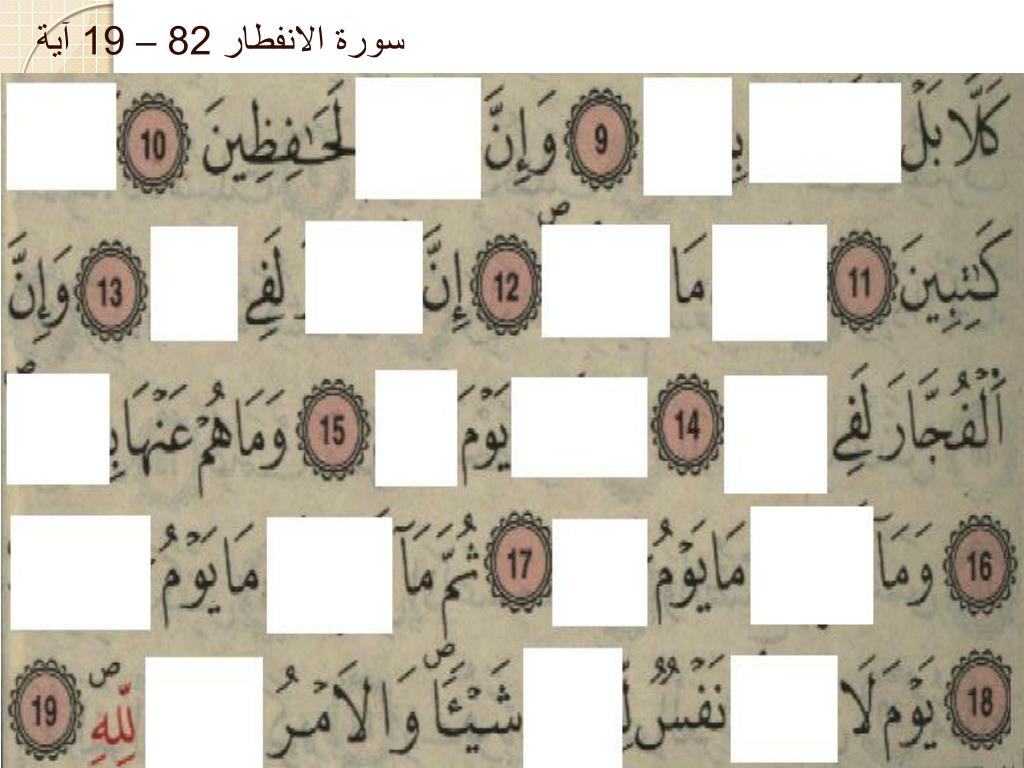 سورة الانفطار 82 – 19 آية
كَلَّا بَلْ بِ 9 وَإِنَّ لَحَٰفِظِينَ 10
كَٰتِبِينَ 11 مَا 12 إِنَّ لَفِے 13 وَإِنَّ
اَ۬لْفُجَّارَ لَفِے 14 يَوْمَ 15 وَمَا هُمْ عَنْهَا بِ
16 وَمَآ مَا يَوْمُ 17 ثُمَّ مَآ مَا يَوْمُ
18 يَوْمَ لَا نَفْسٌ لِّ شَيْـٔاً وَالَامْرُ لِلهِ 19